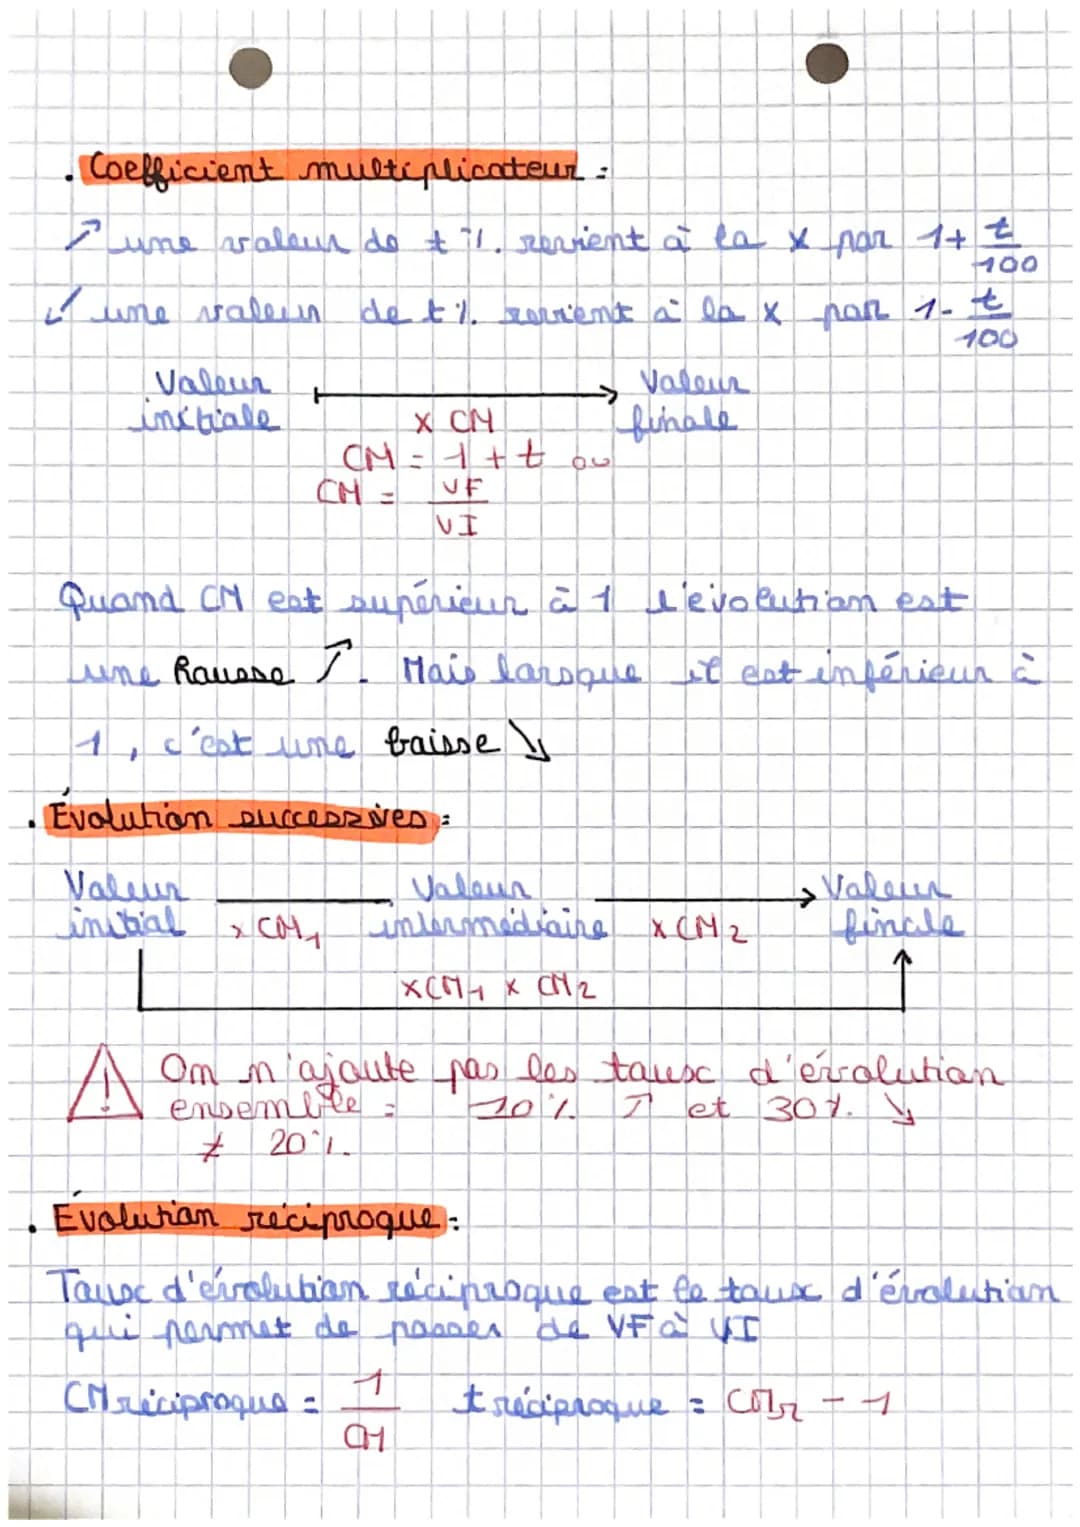 . Coefficient multiplicateur :
↗ une valeur de t %. revient à la x par 1 + t/100
↙ une valeur de t %. revient à la x par 1 - t/100
Valeur initiale ⟼ Valeur finale
x CM
CM = 1 + t ou
CM = VF/VI
Quand CM est supérieur à 1 l'évolution est
une Hausse ↗. Mais lorsque il est inférieur à
1, c'est une baisse ↘
. Évolution successives :
Valeur initial x CM1 Valeur intermédiaire x CM2 → Valeur finale
xCM1 x CM2
⚠ On n'ajoute pas les taux d'évolution
ensemble = 10 % ↗ et 30 %. ↘
≠ 20 %.
. Évolution réciproque :
Taux d'évolution réciproque est le taux d'évolution
qui permet de passer de VF à VI
CM réciproque = 1/CM t réciproque = CMr - 1